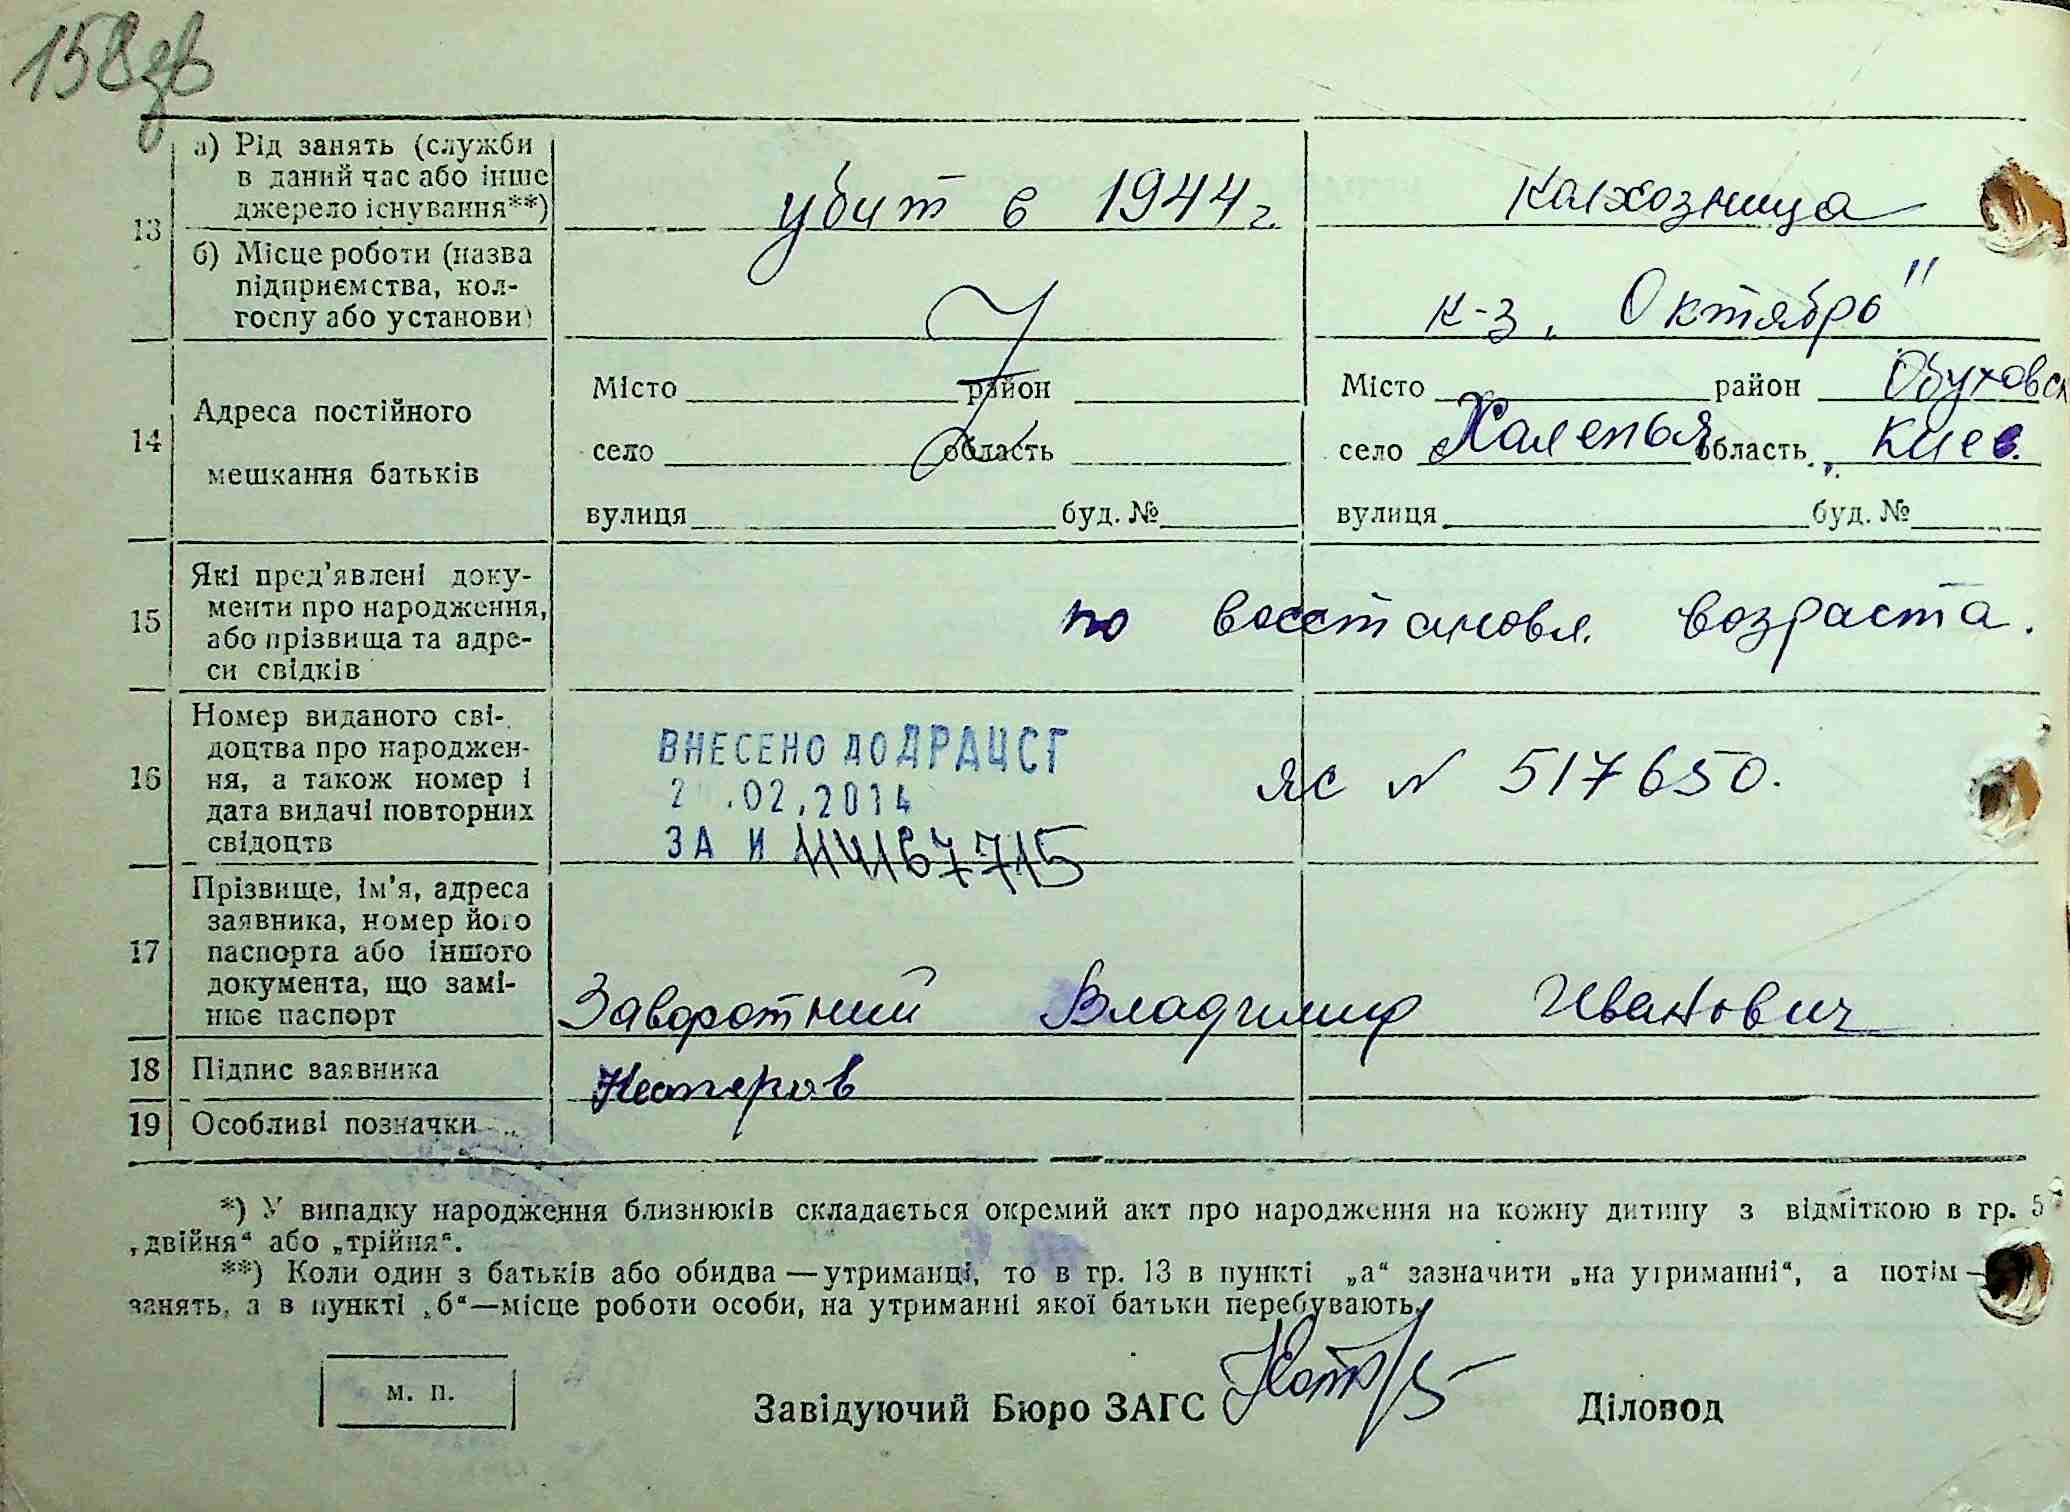 158зв
а) Рід занять (служби
в даний час або інше
джерело існування**)
убит в 1944 г.
колхозница
13
б) Місце роботи (назва
підприємства, кол-
госпу або установи)
к-з „Октябрь"
14
Адреса постійного
мешкання батьків
Місто район
село область
вулиця буд. №
Місто район Обуховск
село Халепья область „ Киев.
вулиця буд. №
15
Які пред'явлені доку-
менти про народження,
або прізвища та адре-
си свідків
по восстановл. возраста.
16
Номер виданого сві-
доцтва про народжен-
ня, а також номер і
дата видачі повторних
свідоцтв
ВНЕСЕНО ДО ДРАЦСГ
2 .02.2014
ЗА И 114167715
ЯС N 517650.
17
Прізвище, ім'я, адреса
заявника, номер його
паспорта або іншого
документа, що замі-
нює паспорт
Заворотний Владимир Иванович
18 Підпис заявника
19 Особливі позначки
*) У випадку народження близнюків складається окремий акт про народження на кожну дитину з відміткою в гр. 5
„двійня“ або „трійня“.
**) Коли один з батьків або обидва — утриманці, то в гр. 13 в пункті „а“ зазначити „на утриманні“, а потім —
занять, а в пункті „б“—місце роботи особи, на утриманні якої батьки перебувають.
м. п.
Завідуючий Бюро ЗАГС
Діловод